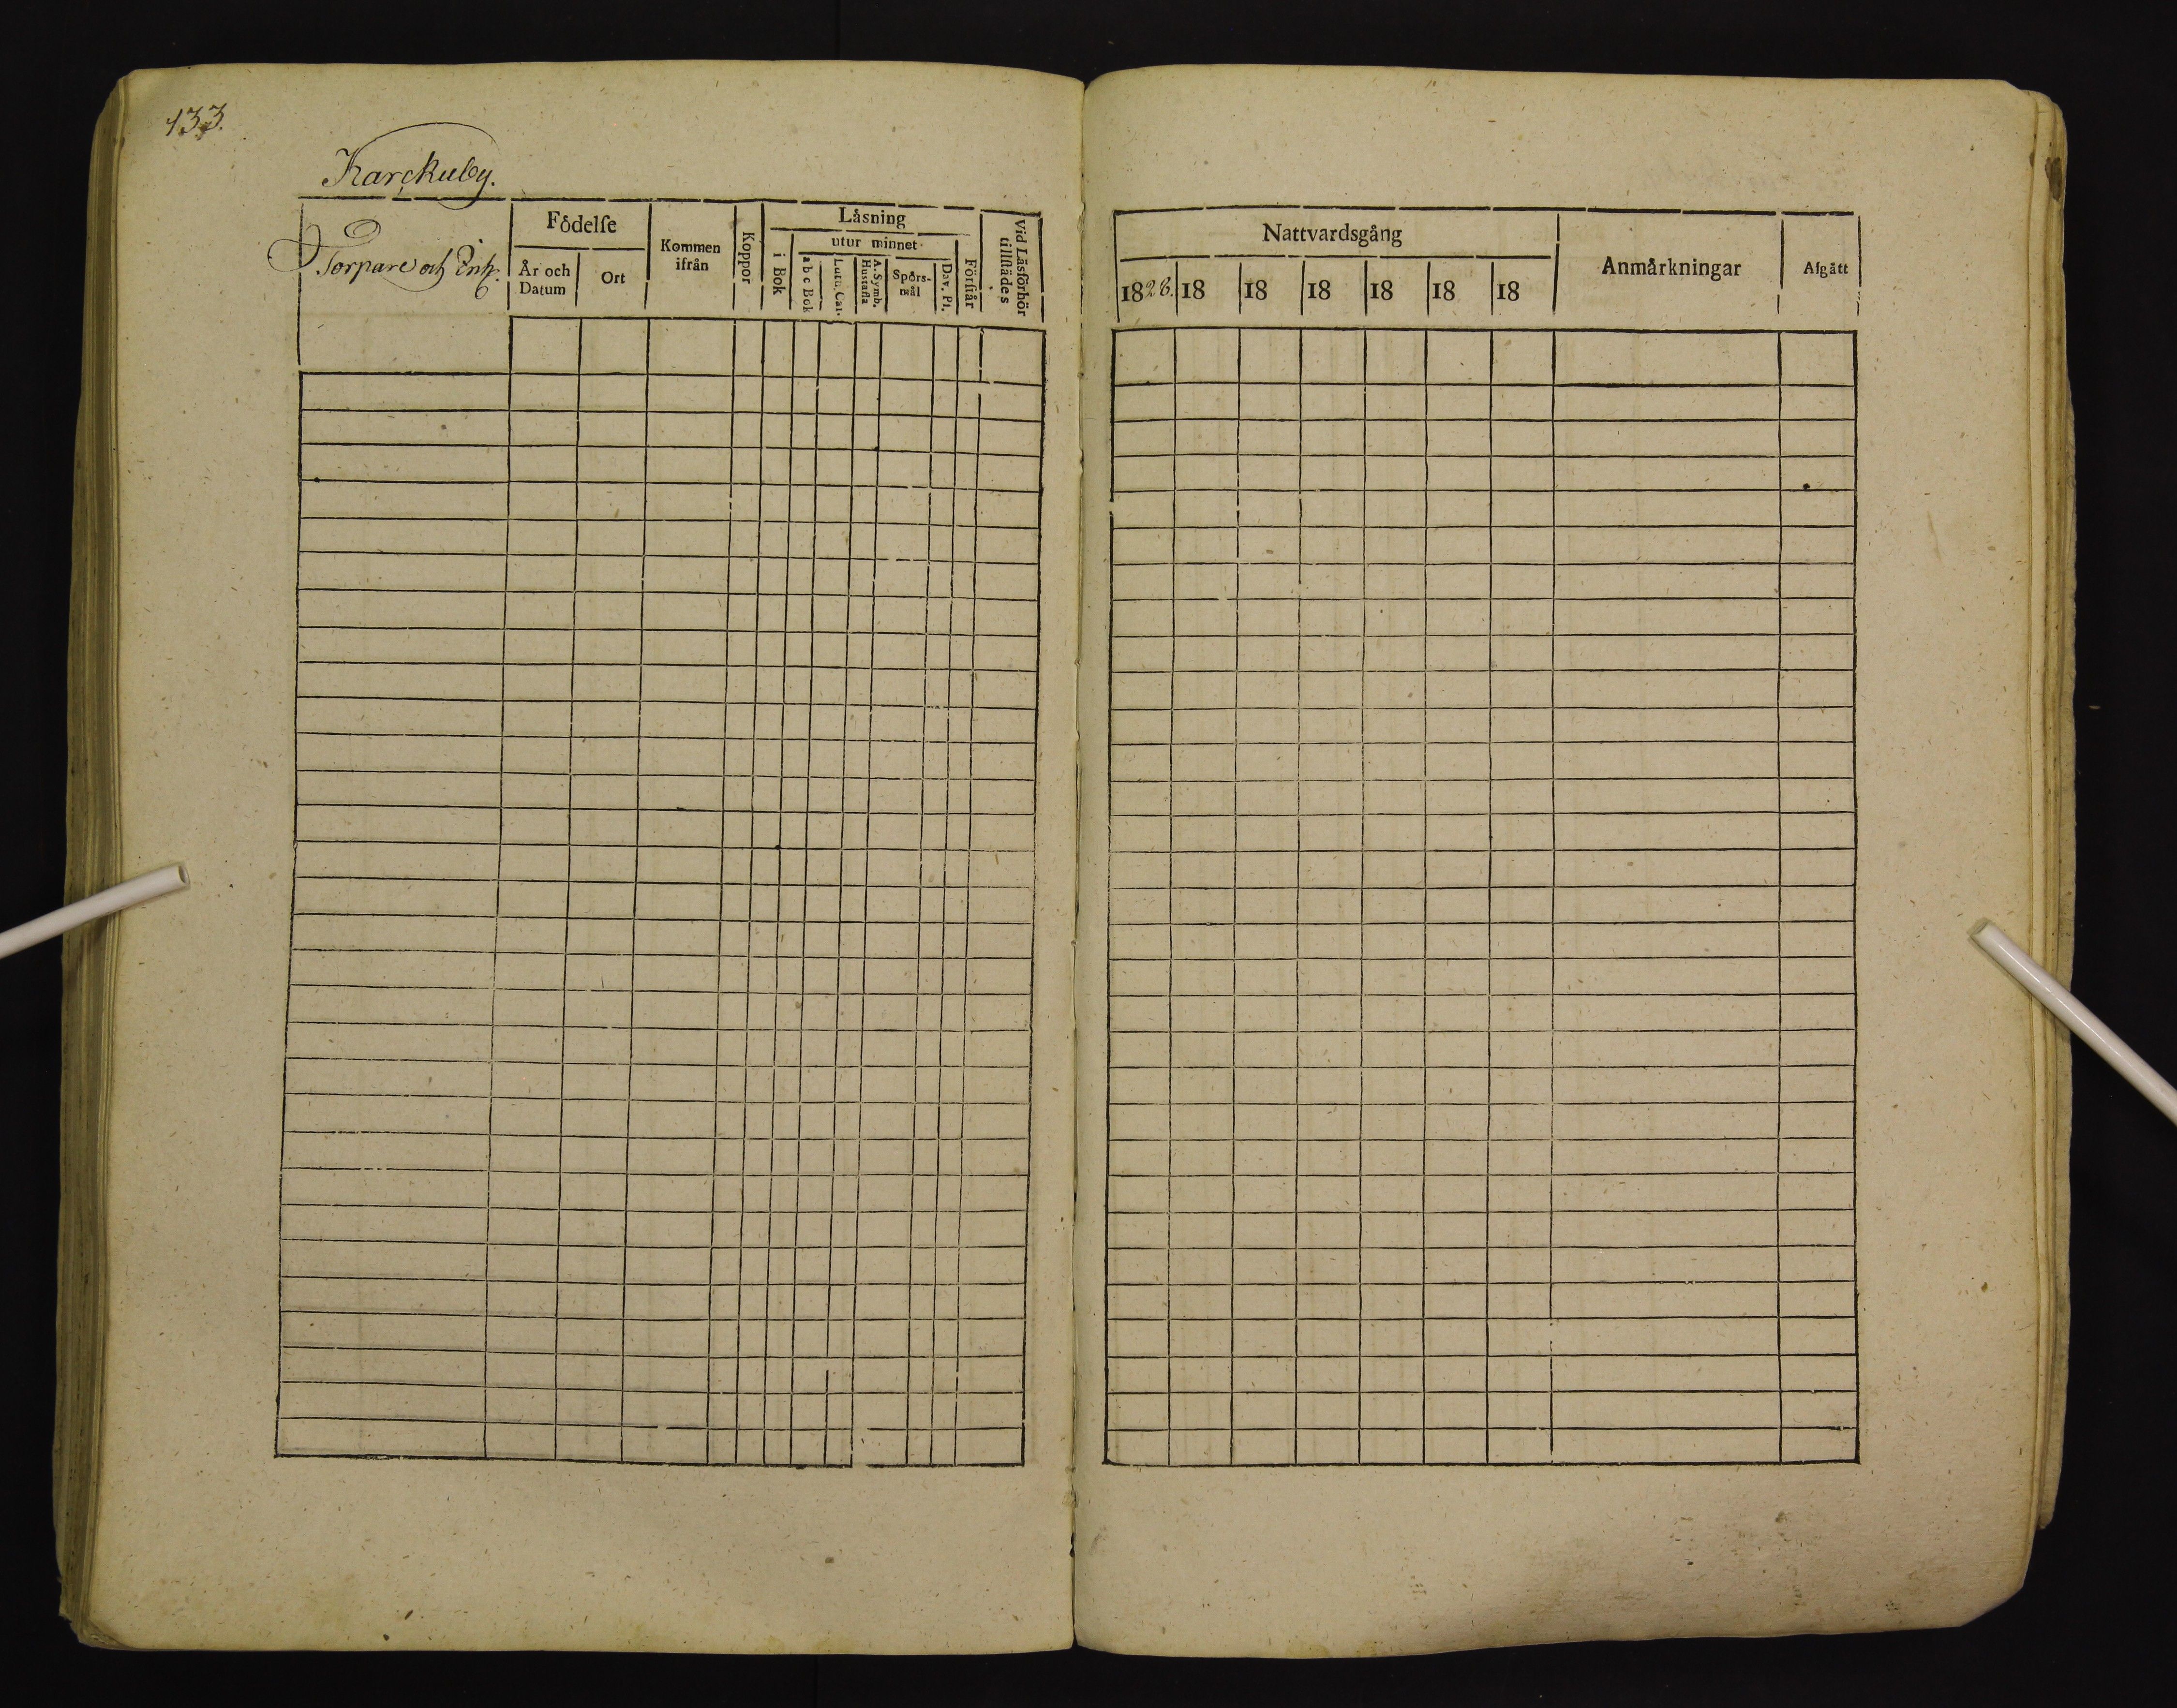 133.
Karckuby.
Torpare och Enk.
Födelſe
År och Datum
Ort
Kommen ifrån
Koppor
Låsning
i Bok
utur minnet
a b c Bok
Luth. Cat.
A. Symb. Hustafla
Spörs-mål
Dav. Pſ.
Förſtår
Vid Läsförhör tillſtädes
Nattvardsgång
1828. 18 18 18 18 18 18
Anmårkningar
Afgått